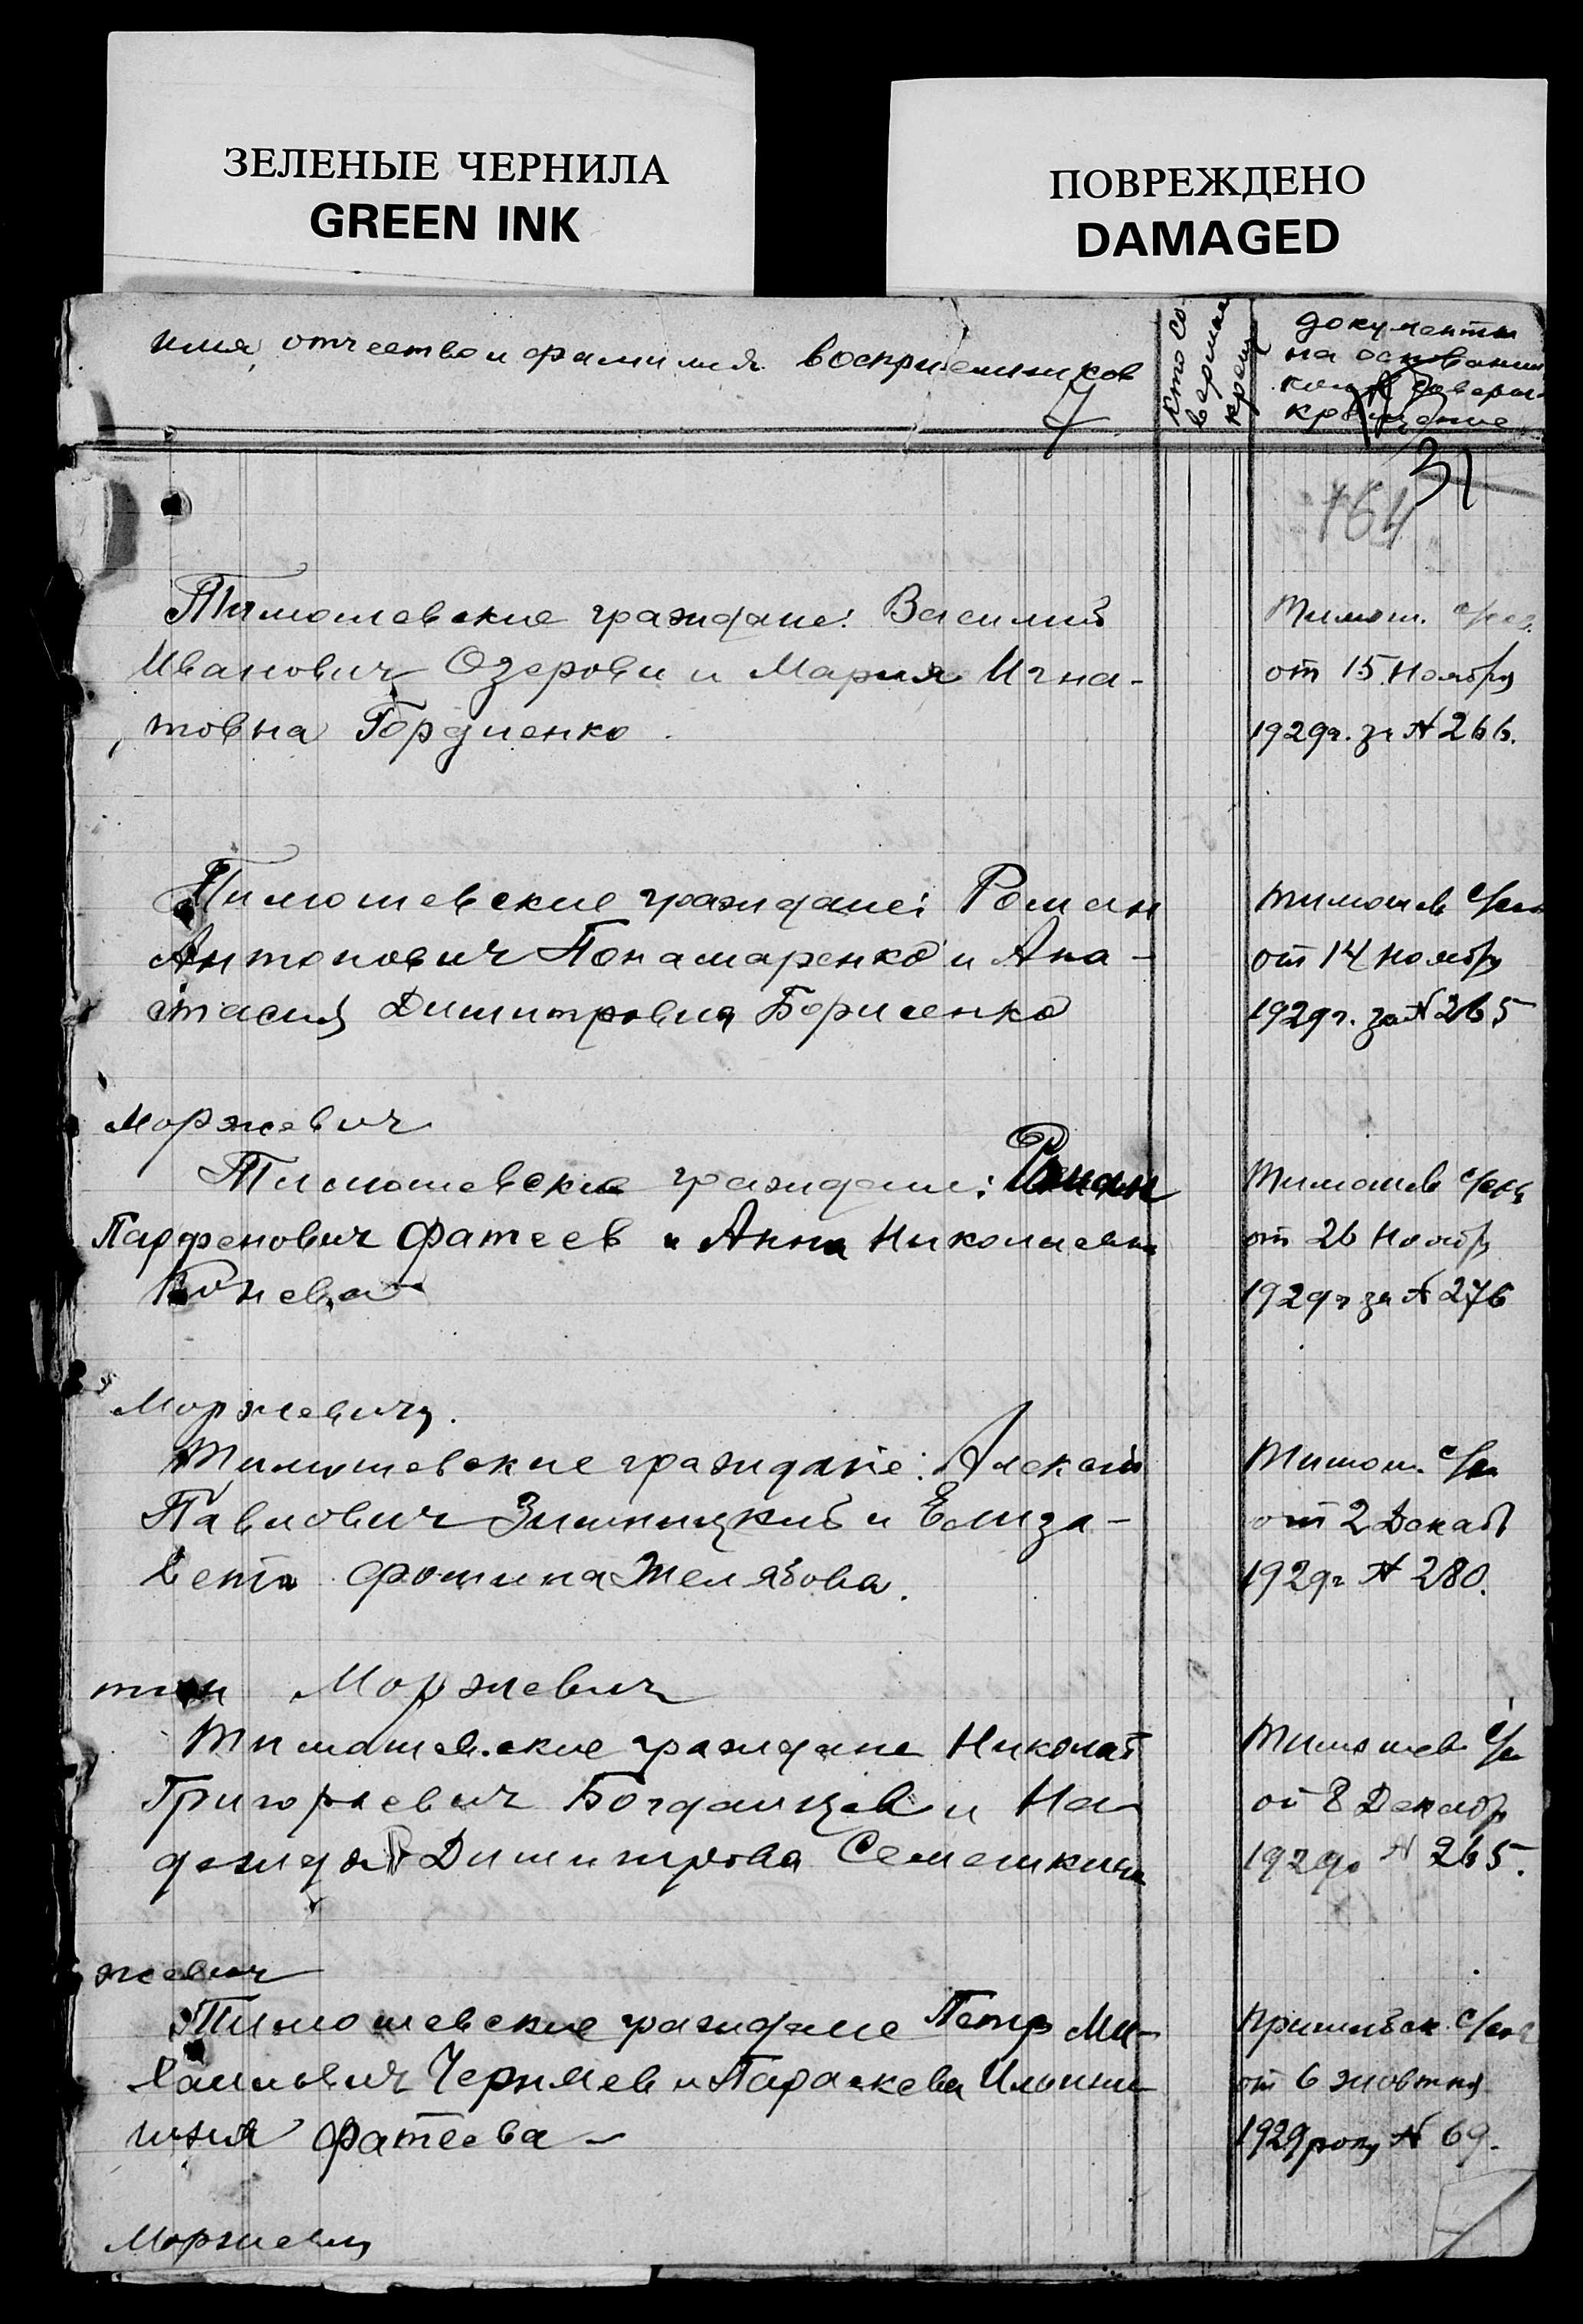 ЗЕЛЕНЫЕ ЧЕРНИЛА
GREEN INK
ПОВРЕЖДЕНО
DAMAGED
имя, отчество и фамилия восприемников
кто со-
вершал
крещ
документы
на основании
кои совершен
крещение
7
31
164
Тимошевские граждане: Василий
Иванович Озеров и Мария Игна-
товна Гордиенко.
Тимош. с/сов.
от 15 Ноября
1929г. за № 266.
Тимошевские граждане: Роман
Антонович Понамаренко и Ана-
стасия Димитровна Борисенко
Тимошев с/сов
от 14 Ноября
1929г. за № 265
Моржевич
Тимошевские граждане: Роман
Парфенович Фатеев и Анна Николаевна
Конева
Тимошев с/сов
от 26 Ноябр
1929г за № 276
Моржевич.
Тимошевские граждане: Алексей
Павлович Зимницкий и Елиза-
вета Фотина Желябова.
Тимош. с/со
от 2 Декаб
1929г № 280.
Моржевич
Тимошевские граждане Николай
Григорьевич Богданцев и На
дежда Димитрова Семешкина
Тимошев с/со
от 8 Декабр
1929г № 265.
жевич
Тимошевские граждане Петр Ми-
хаилович Черняев и Параскева Ильини
чна Фатеева
Пришибск. с/сов
от 6 жовтня
1929 року № 69.
Моржевич